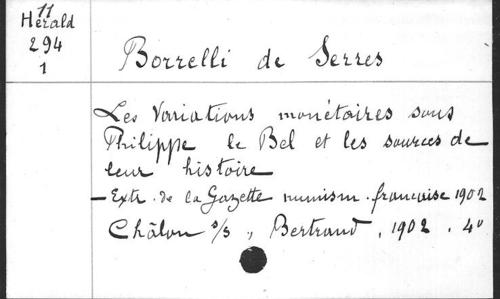 11
Herald
294
1
Borrelli de Serres
Les Variations monétaires sous
Philippe le Bel et les sources de
leur histoire
- Extr. de la Gazette numism. française 1902
Châlon s/s, Bertrand, 1902. 4º